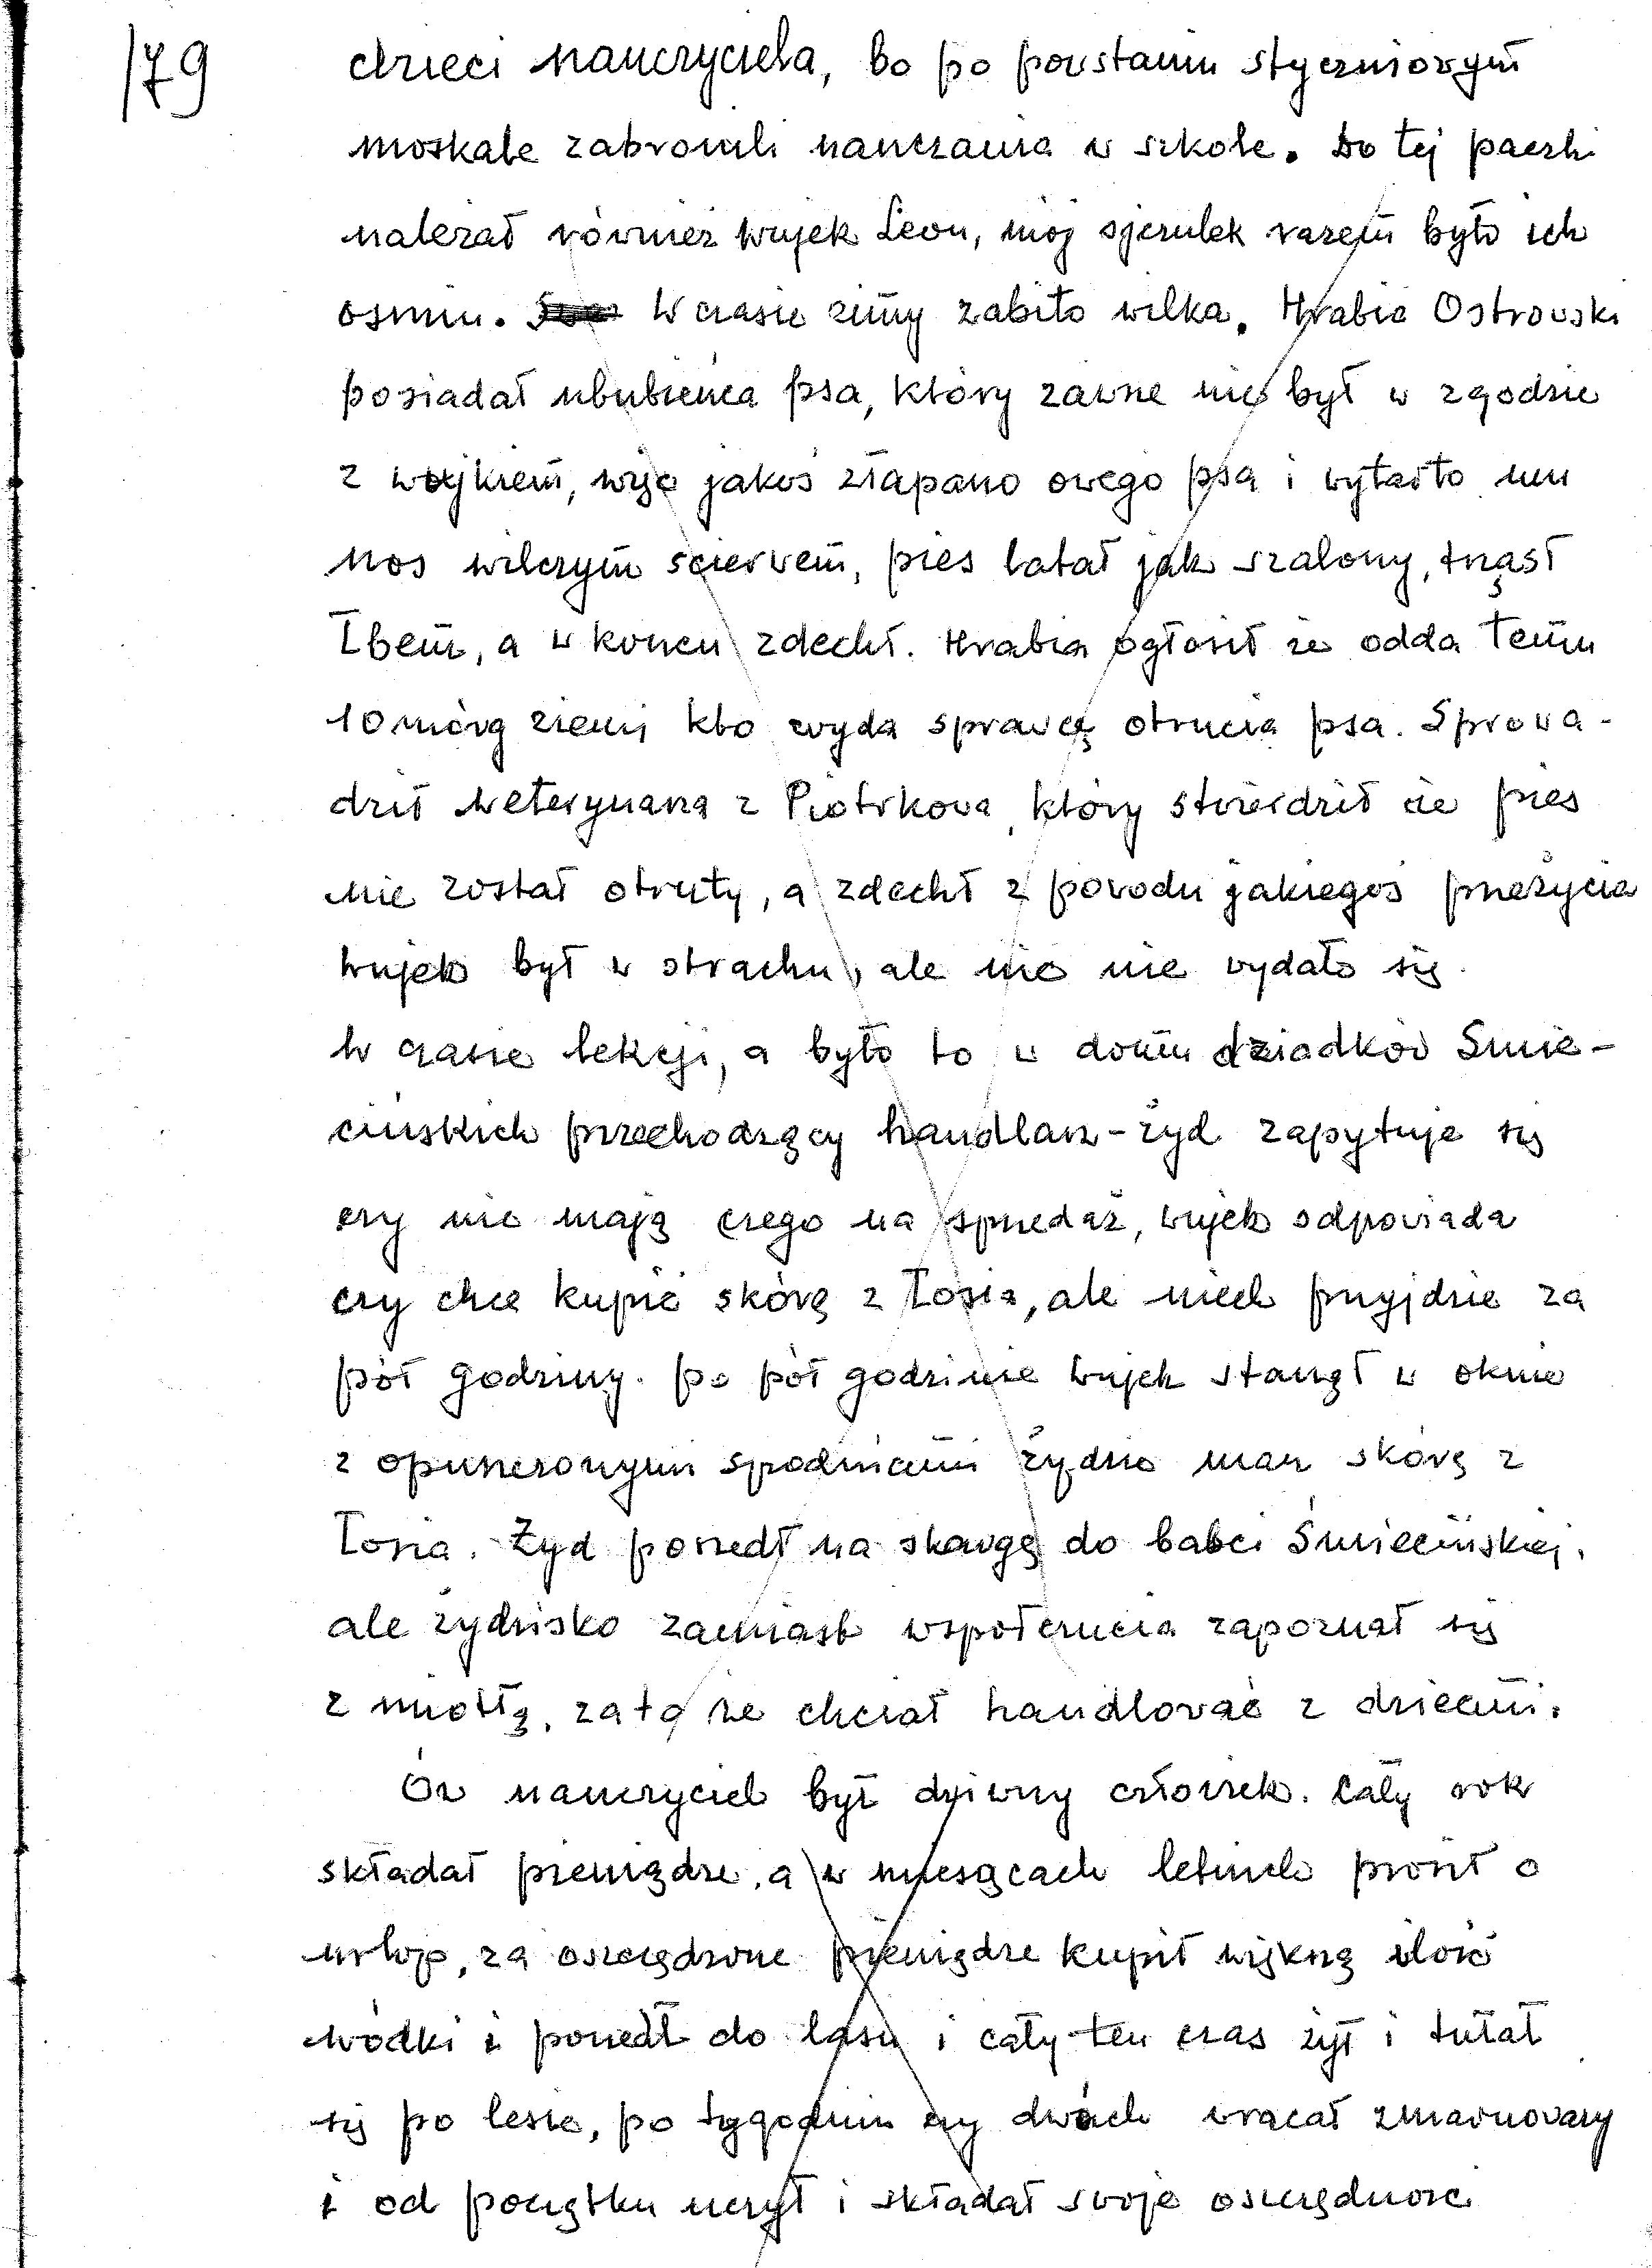 179
dzieci nauczyciela, bo po powstaniu styczniowym
moskale zabronili nauczania w szkole. Do tej paczki
należał również wujek Leon, mój ojczulek razem było ich
osmiu. W czasie zimy zabito wilka. Hrabia Ostrowski
posiadał ulubieńca psa, który zawsze nie był w zgodzie
z wujkiem, więc jakoś złapano owego psa i wytarto mu
nos wilczym scierwem, pies latał jak szalony, trząsł
łbem, a w koncu zdechł. Hrabia ogłosił że odda temu
10 mórg ziemi kto wyda sprawcę otrucia psa. Sprowa-
dził weterynarza z Piotrkowa, który stwierdził że pies
nie został otruty, a zdechł z powodu jakiegoś przeżycia
wujek był w strachu, ale nic nie wydało się.
W czasie lekcji, a było to w domu dziadków Smie-
cińskich przechodzący handlarz-żyd zapytuje się
czy nie mają czego na sprzedaż, wujek odpowiada
czy chce kupić skórę z łosia, ale niech przyjdzie za
pół godziny. po pół godzinie wujek stanął w oknie
z opuszczonymi spodniami żydzie masz skórę z
łosia. Żyd poszedł na skargę do babci Śmiecińskiej,
ale żydzisko zamiast współczucia zapoznał się
z miotłą, za to że chciał handlować z dziećmi.
Ów nauczyciel był dziwny człowiek. Cały rok
składał pieniądze, a w miesącach letnich prosił o
urlop, za oszczędzone pieniądze kupił większą ilość
wódki i poszedł do lasu i cały ten czas żył i tułał
się po lesie, po tygodniu czy dwóch wracał zmarnowany
i od początku uczył i składał swoje oszczędnosci